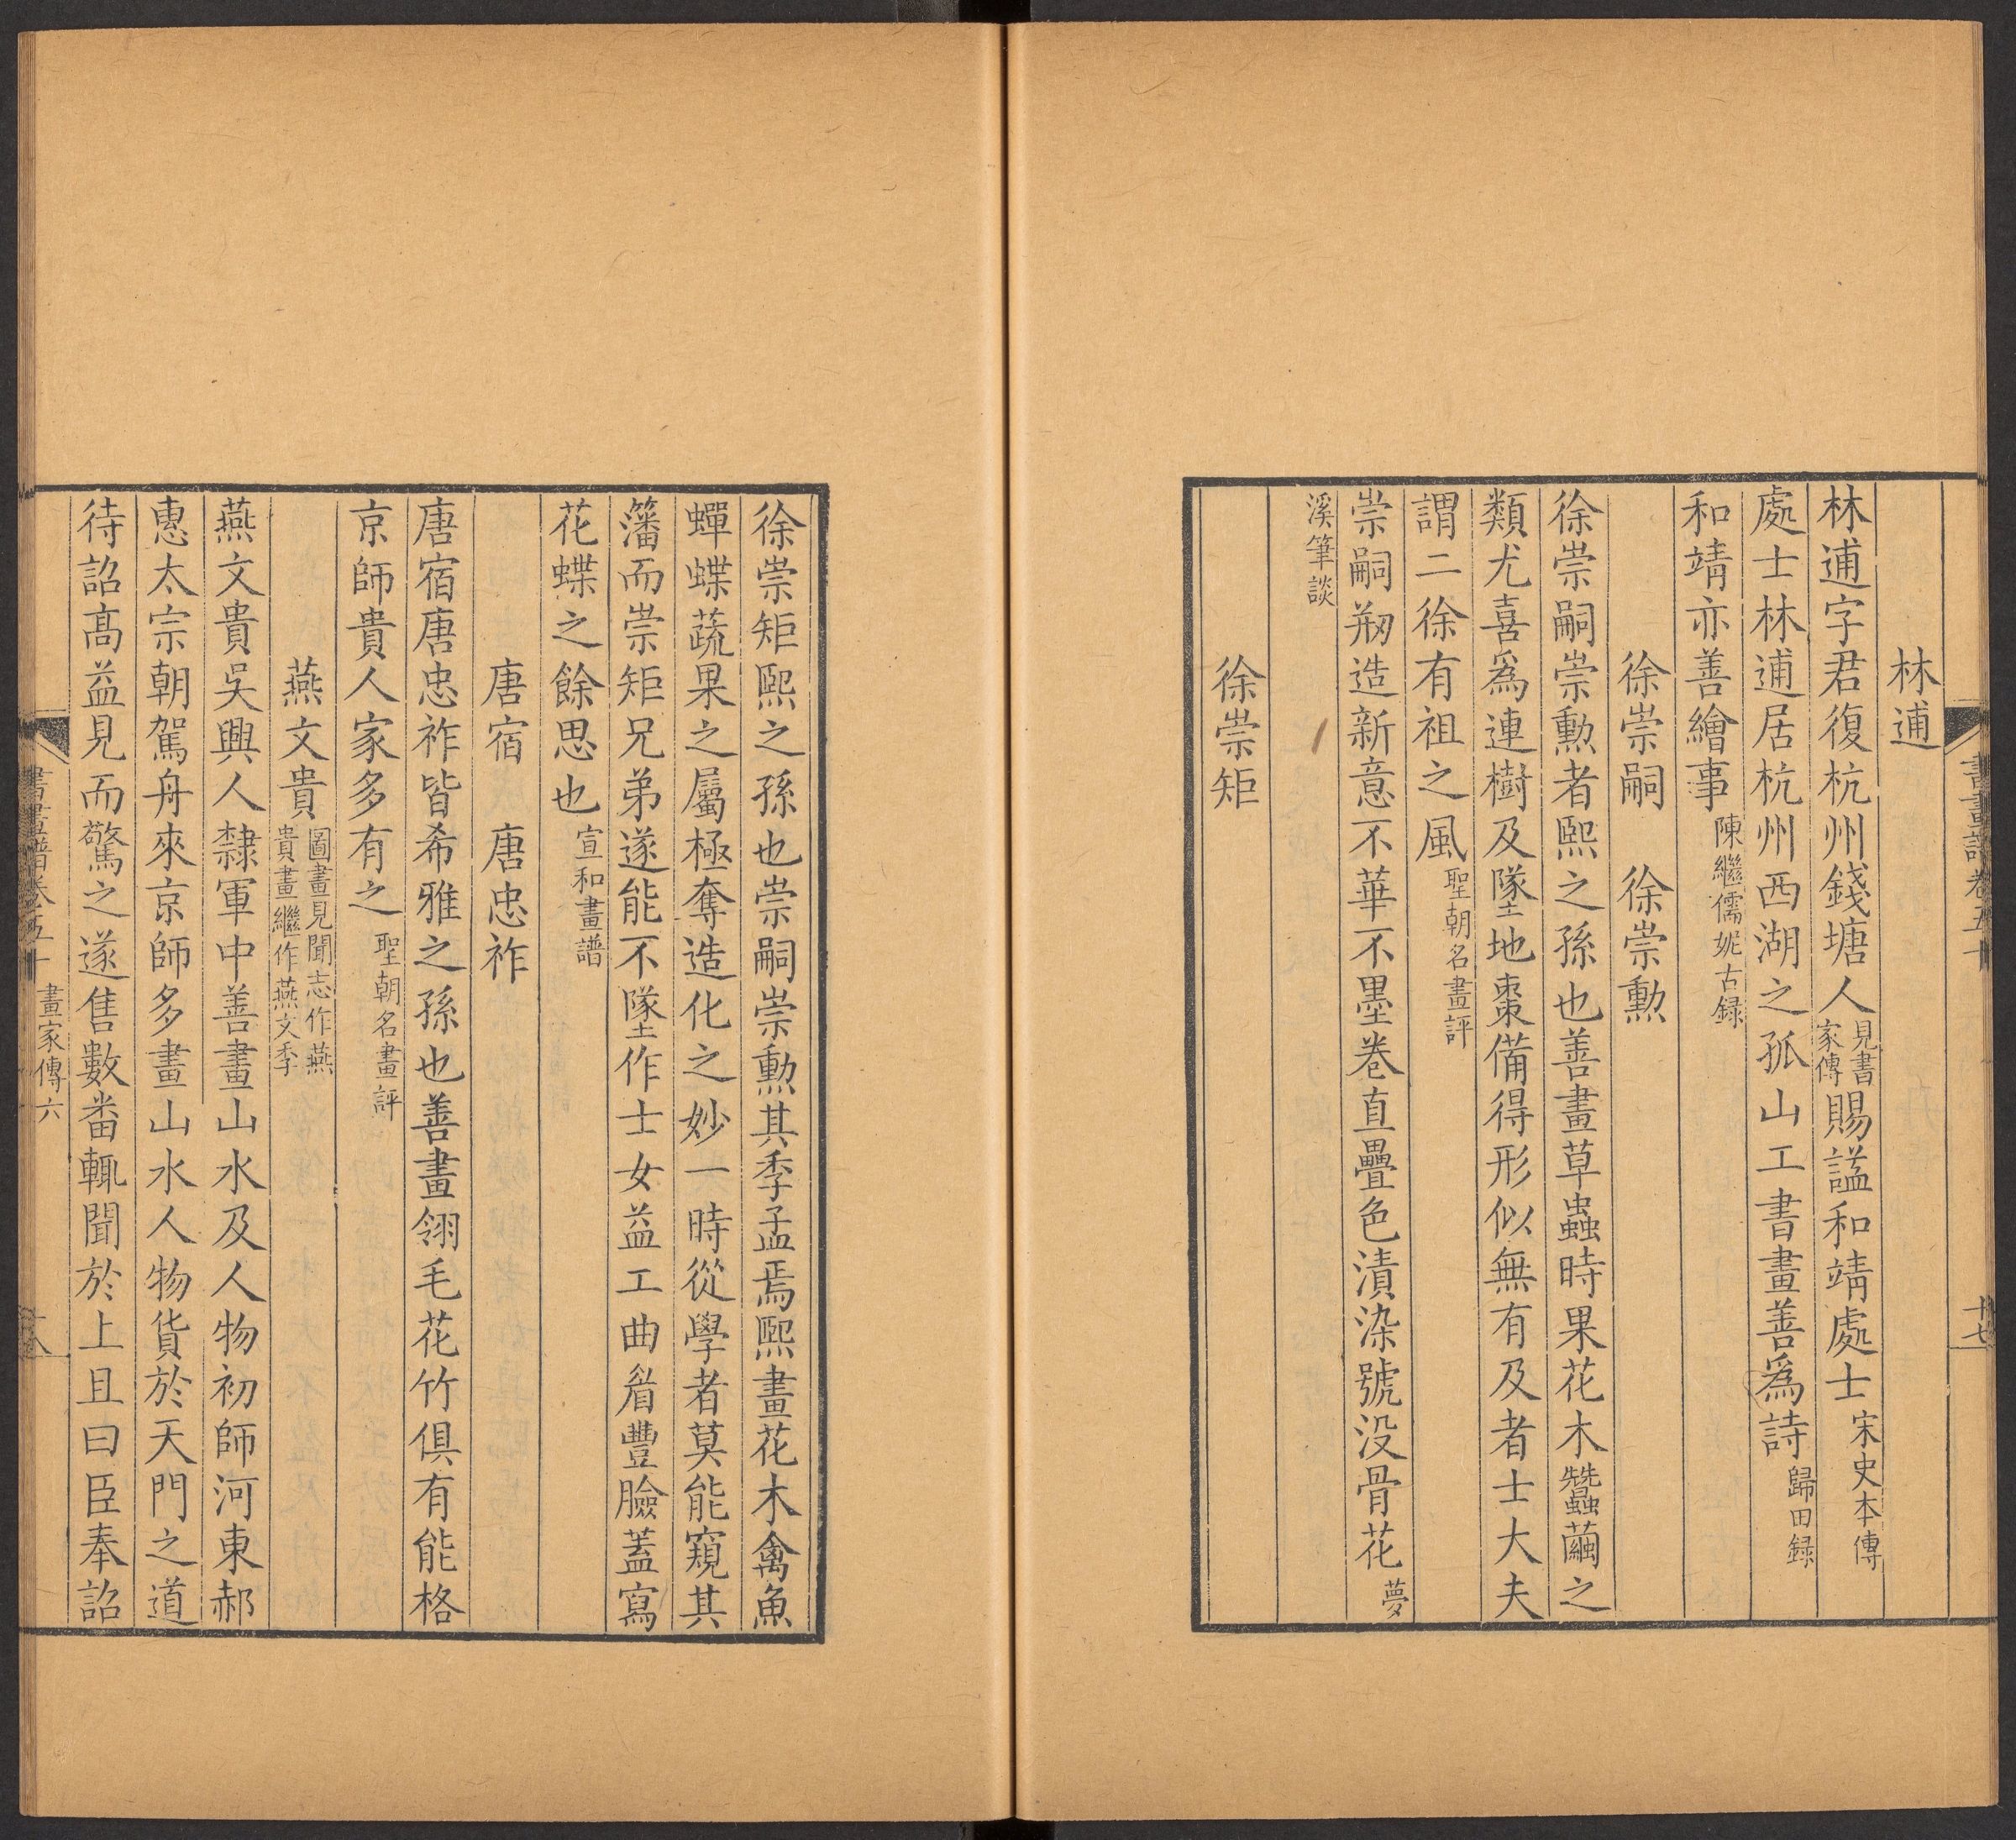 林逋
林逋字君復杭州錢塘人見書家傳賜謚和靖處士宋史本傳
處士林逋居杭州西湖之孤山工書畫善爲詩歸田録
和靖亦善繪事陳繼儒妮古録
徐崇嗣　徐崇勲
徐崇嗣崇勲者熙之孫也善畫草蟲時果花木蠶繭之
類尤喜爲連樹及墜地棗備得形似無有及者士大夫
謂二徐有祖之風聖朝名畫評
崇嗣剏造新意不華不墨卷直疊色漬染號没骨花夢
溪筆談
徐崇矩
書畫譜卷五十
十七
徐崇矩熙之孫也崇嗣崇勲其季孟焉熙畫花木禽魚
蟬蝶蔬果之屬極奪造化之妙一時從學者莫能窺其
籓而崇矩兄弟遂能不墜作士女益工曲眉豐臉蓋寫
花蝶之餘思也宣和畫譜
唐宿　唐忠祚
唐宿唐忠祚皆希雅之孫也善畫翎毛花竹俱有能格
京師貴人家多有之聖朝名畫評
燕文貴圖畫見聞志作燕貴畫繼作燕文季
燕文貴吳興人隸軍中善畫山水及人物初師河東郝
惠太宗朝駕舟來京師多畫山水人物貨於天門之道
待詔高益見而驚之遂售數番輒聞於上且曰臣奉詔
書畫譜卷五十　畫家傳六
十八